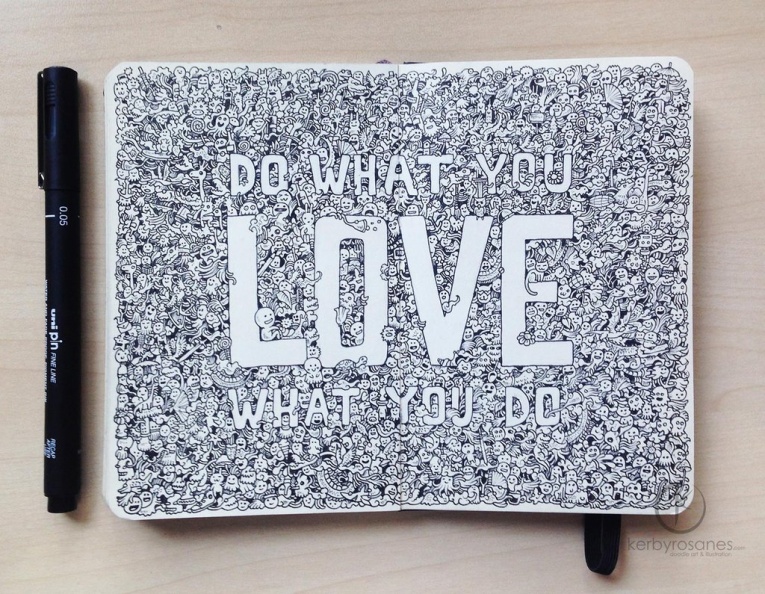 DO WHAT YOU
LOVE
WHAT YOU DO
0.05
uni pin FINE LINE
kerbyrosanes.com
doodle art & illustration